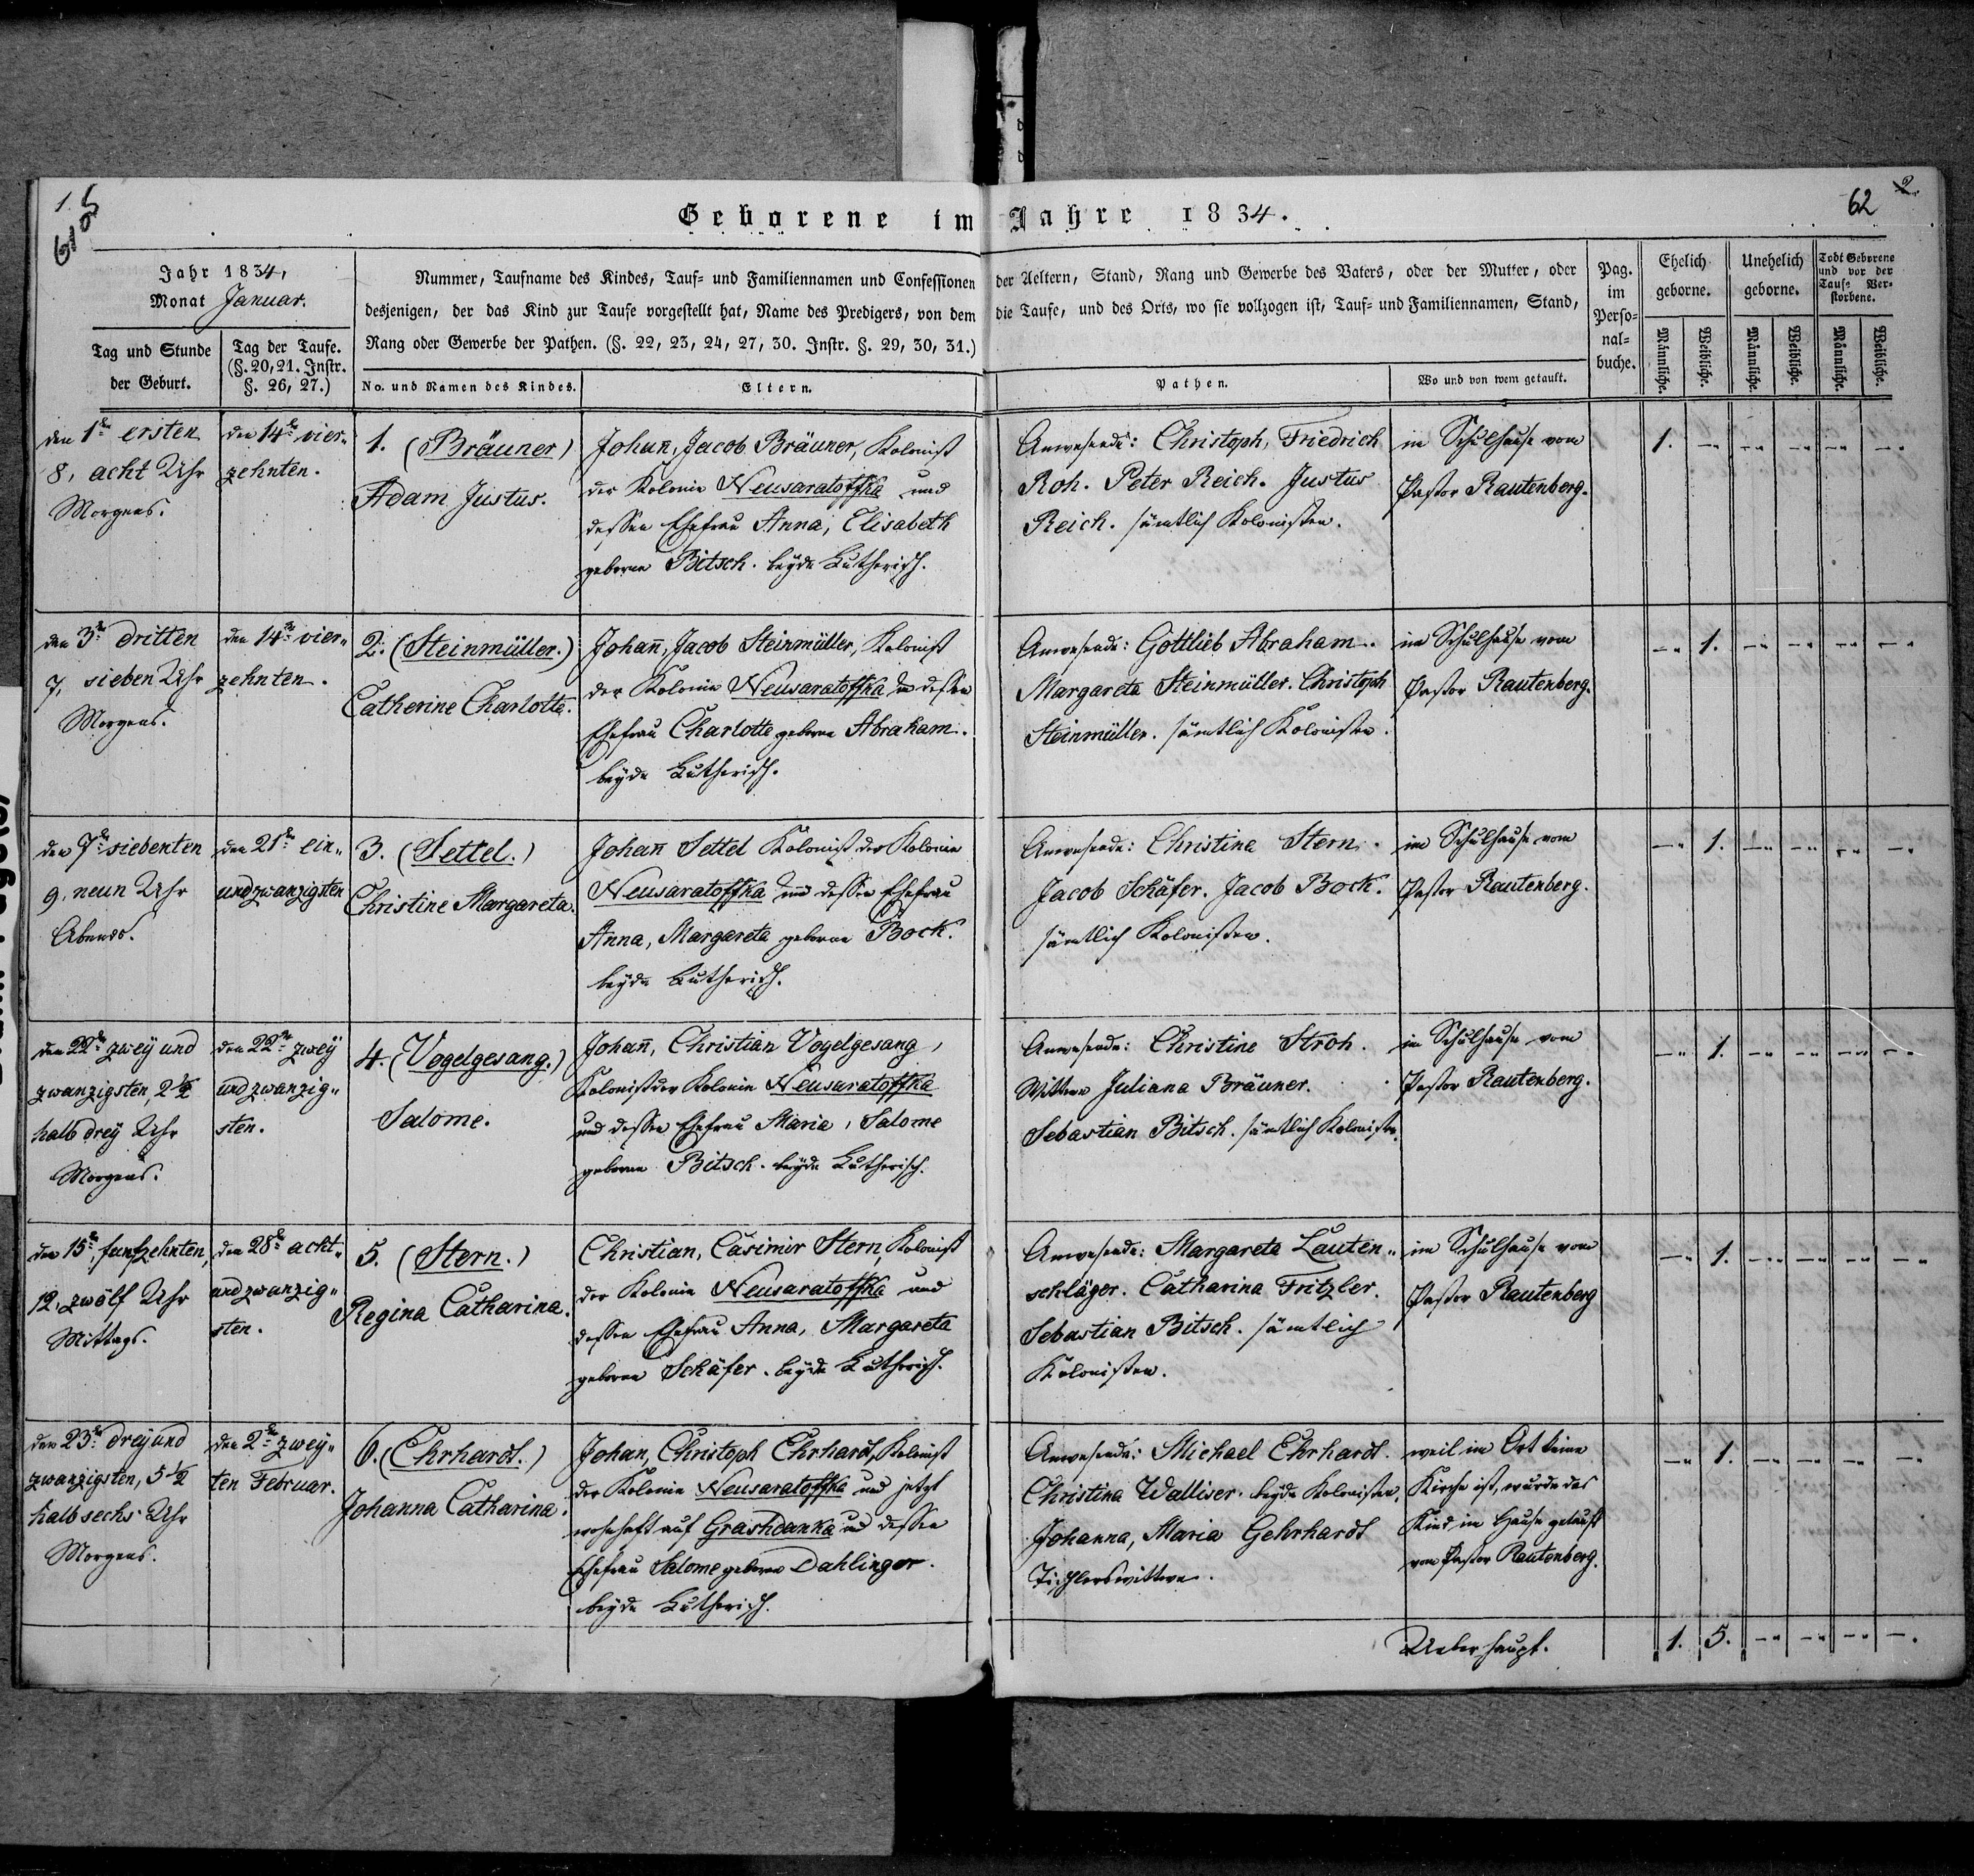 1.
615
Geborene im Jahre 1834.
62
2.
Jahr 1834,
Monat Januar.
Tag und Stunde
der Geburt.
Tag der Taufe.
(§. 20, 21. Instr.
§. 26, 27.)
Nummer, Taufname des Kindes, Tauf= und Familiennamen und Confessionen der Aeltern, Stand, Rang und Gewerbe des Vaters, oder der Mutter, oder
desjenigen, der das Kind zur Taufe vorgestellt hat, Name des Predigers, von dem die Taufe, und des Orts, wo sie vollzogen ist, Tauf= und Familiennamen, Stand,
Rang oder Gewerbe der Pathen. (§. 22, 23, 24, 27, 30. Instr. §. 29, 30, 31.)
No. und Namen des Kindes.
Eltern.
Pathen.
Wo und von wem getauft.
Pag.
im
Perso=
nal=
buche.
Ehelich
geborne.
Unehelich
geborne.
Todt Geborene
und vor der
Taufe Ver=
storbene.
Männliche.
Weibliche.
Männliche.
Weibliche.
Männliche.
Weibliche.
den 1ten ersten
8, acht Uhr
Morgens.
den 14ten vier„
zehnten.
1. (Bräuner)
Adam Justus.
Johañ, Jacob Bräuner, Kolonist
der Kolonie Neusaratoffka und
dessen Ehefrau Anna, Elisabeth
geborne Bitsch. beyde Lutherisch.
Anwesende: Christoph, Friedrich
Roh. Peter Reich. Justus
Reich. sämtlich Kolonisten.
im Schulhause vom
Pastor Rautenberg.
1. -„ -„ -„ -„ -„
den 3ten dritten
7, sieben Uhr
Morgens.
den 14ten vier„
zehnten.
2. (Steinmüller.)
Catherine Charlotte.
Johañ, Jacob Steinmüller, Kolonist
der Kolonie Neusaratoffka und dessen
Ehefrau Charlotte geborne Abraham.
beyde Lutherisch.
Anwesende: Gottlieb Abraham.
Margareta Steinmüller. Christoph
Steinmüller. sämtlich Kolonisten.
im Schulhause vom
Pastor Rautenberg.
-„ 1. -„ -„ -„ -„
den 7ten siebenten
9, neun Uhr
Abends.
den 21ten ein„
undzwanzigsten
3. (Settel.)
Christine Margareta.
Johañ Settel Kolonist der Kolonie
Neusaratoffka und dessen Ehefrau
Anna, Margareta geborne Bock.
beyde Lutherisch.
Anwesende: Christina Stern.
Jacob Schäfer. Jacob Bock.
sämtlich Kolonisten.
im Schulhause vom
Pastor Rautenberg.
-„ 1. -„ -„ -„ -„
den 22ten zwey und
zwanzigsten, 2½
halb drey Uhr
Morgens.
den 22ten zwey
undzwanzig„
sten.
4. (Vogelgesang.)
Salome.
Johañ, Christian Vogelgesang,
Kolonist der Kolonie Neusaratoffka
und dessen Ehefrau Maria, Salome
geborne Bitsch. beyde Lutherisch.
Anwesende: Christine Stroh.
Wittwe Juliana Bräuner.
Sebastian Bitsch. sämtlich Koloniste.
im Schulhause vom
Pastor Rautenberg.
-„ 1. -„ -„ -„ -„
den 15ten, funfzehnten,
12, zwölf Uhr
Mittags.
den 28ten acht„
undzwanzig„
sten.
5. (Stern.)
Regina Catharina.
Christian, Casimir Stern, Kolonist
der Kolonie Neusaratoffka und
dessen Ehefrau Anna, Margareta
geborne Schäfer. beyde Lutherisch.
Anwesende: Margareta Lauten„
schläger. Catharina Fritzler.
Sebastian Bitsch. sämtlich
Kolonisten.
im Schulhause vom
Pastor Rautenberg
-„ 1. -„ -„ -„ -„
den 23ten drey und
zwanzigsten, 5½
halb sechs Uhr
Morgens.
den 2ten zwey„
ten Februar.
6. (Ehrhardt.)
Johanna Catharina.
Johan, Christoph Ehrhardt, Kolonist
der Kolonie Neusaratoffka und jetzt
wohnhaft auf Grashdanka und dessen
Ehefrau Salome geborne Dahlinger.
beyde Lutherisch.
Anwesende: Michael Ehrhardt.
Christina Walliser. beyde Kolonisten.
Johanna, Maria Gehrhardt
Tischlerswittwe.
weil im Ort keine
Kirche ist, wurde das
Kind im Hause getauft
vom Pastor Rautenberg.
-„ 1. -„ -„ -„ -„
Ueberhaupt.
1. 5. -„ -„ -„ -„